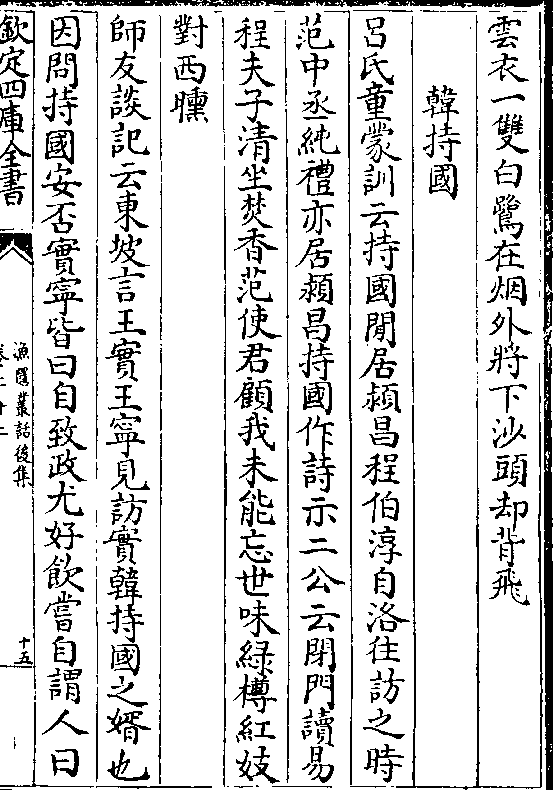 雲衣一雙白鷺在烟外將下沙頭却背飛
韓持國
呂氏童蒙訓云持國閒居潁昌程伯淳自洛往訪之時
范中丞純禮亦居潁昌持國作詩示二公云閉門讀易
程夫子清坐焚香范使君顧我未能忘世味綠樽紅妓
對西曛
師友談記云東坡言王實王寧見訪實韓持國之婿也
因問持國安否實寧皆曰自致政尤好飲嘗自謂人曰
欽定四庫全書
漁隱叢話後集
卷二十二
十五